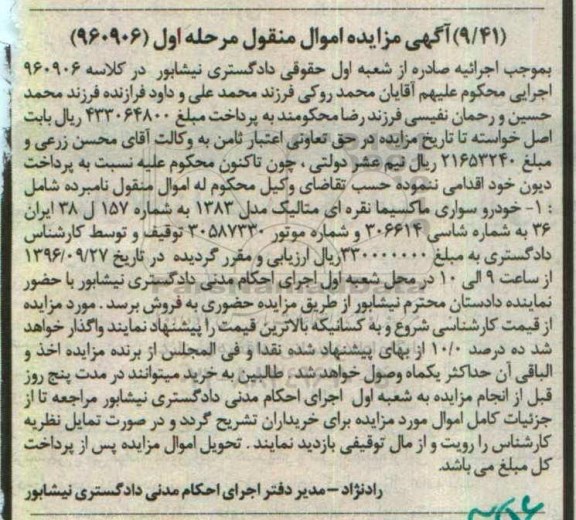 (۹/۴۱) آگهی مزایده اموال منقول مرحله اول (۹۶۰۹۰۶)
بموجب اجرائیه صادره از شعبه اول حقوقی دادگستری نیشابور در کلاسه ۹۶۰۹۰۶
اجرایی محکوم علیهم آقایان محمد روکی فرزند محمد علی و داود فرازنده فرزند محمد
حسین و رحمان نفیسی فرزند رضا محکومند به پرداخت مبلغ ۴۳۳۰۶۴۸۰۰ ریال بابت
اصل خواسته تا تاریخ مزایده در حق تعاونی اعتبار ثامن به وکالت آقای محسن زرعی و
مبلغ ۲۱۶۵۳۲۴۰ ریال نیم عشر دولتی ، چون تاکنون محکوم علیه نسبت به پرداخت
دیون خود اقدامی ننموده حسب تقاضای وکیل محکوم له اموال منقول نامبرده شامل
: ۱- خودرو سواری ماکسیما نقره ای متالیک مدل ۱۳۸۳ به شماره ۱۵۷ ل ۳۸ ایران
۳۶ به شماره شاسی ۳۰۶۶۱۴ و شماره موتور ۳۰۵۸۷۳۳۰ توقیف و توسط کارشناس
دادگستری به مبلغ ۳۳۰۰۰۰۰۰۰ریال ارزیابی و مقرر گردیده در تاریخ ۱۳۹۶/۰۹/۲۷
از ساعت ۹ الی ۱۰ در محل شعبه اول اجرای احکام مدنی دادگستری نیشابور با حضور
نماینده دادستان محترم نیشابور از طریق مزایده حضوری به فروش برسد . مورد مزایده
از قیمت کارشناسی شروع و به کسانیکه بالاترین قیمت را پیشنهاد نمایند واگذار خواهد
شد ده درصد ۱۰/۰ از بهای پیشنهاد شده نقدا و فی المجلس از برنده مزایده اخذ و
الباقی آن حداکثر یکماه وصول خواهد شد. طالبین به خرید میتوانند در مدت پنج روز
قبل از انجام مزایده به شعبه اول اجرای احکام مدنی دادگستری نیشابور مراجعه تا از
جزئیات کامل اموال مورد مزایده برای خریداران تشریح گردد و در صورت تمایل نظریه
کارشناس را رویت و از مال توقیفی بازدید نمایند . تحویل اموال مزایده پس از پرداخت
کل مبلغ می باشد.
رادنژاد – مدیر دفتر اجرای احکام مدنی دادگستری نیشابور